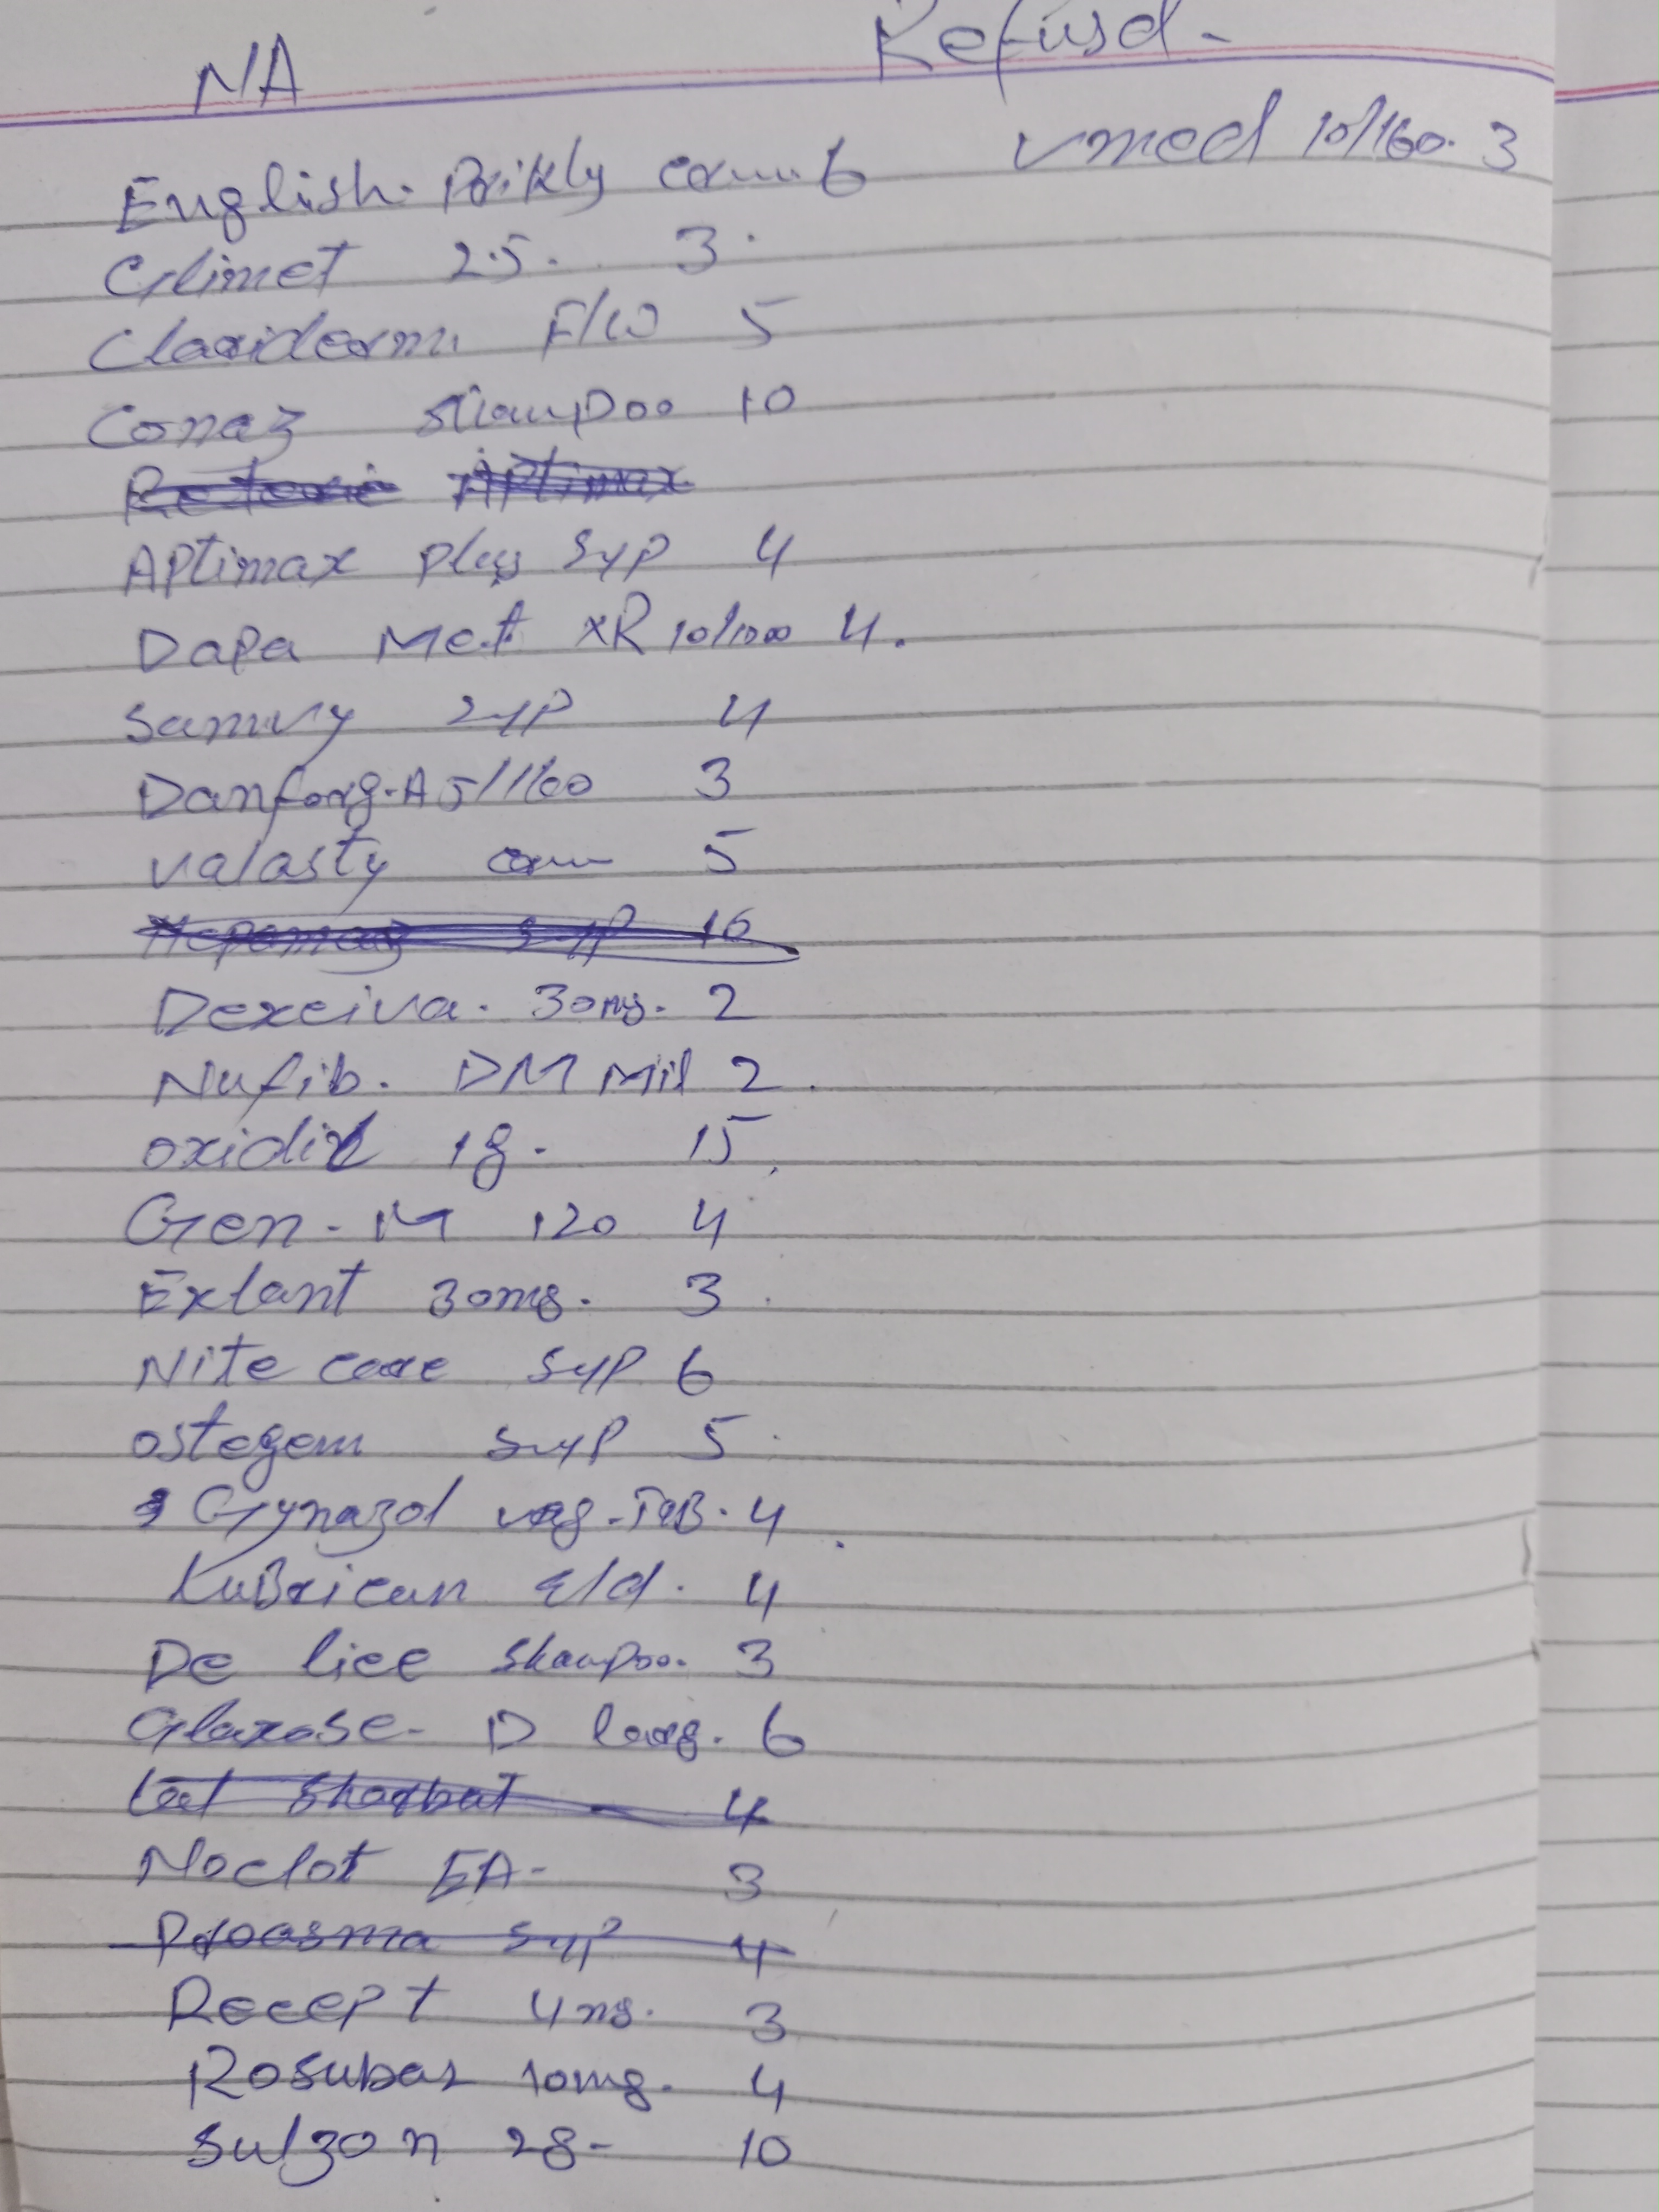 NA
Refusd.
vmed 10/160. 3
English. Prikly 6
Glimet 2.5. 3
Claxiderm F/W 5
Conaz Shampoo 10
Aptimax
Aptimax plus syp 4
Dapa Met XR 10/1000 4.
Samvy syp 4
Danforg.A 5/160 3
valasty 5
syp 16
Dexeiva. 30mg. 2
Nufib. DM Mil 2
oxidil 1g. 15
Gen-M 120 4
Exlant 30mg. 3
Nite care syp 6
ostegem syp 5
Gynazol vag-TaB. 4
LuBrican E/d. 4
De lice Shampoo. 3
Glaxose-D larg. 6
Shaqbat 4
Noclot EA- 3
Proasma syp 4
Recept 4mg. 3
Rosubar 10mg. 4
Sulzon 2g- 10